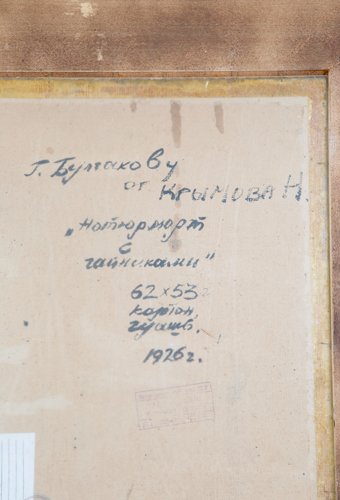 Г. Булгакову
от Крымова Н.
„Натюрморт
с
чайниками"
62 х 53
картон,
гуашь.
1926 г.